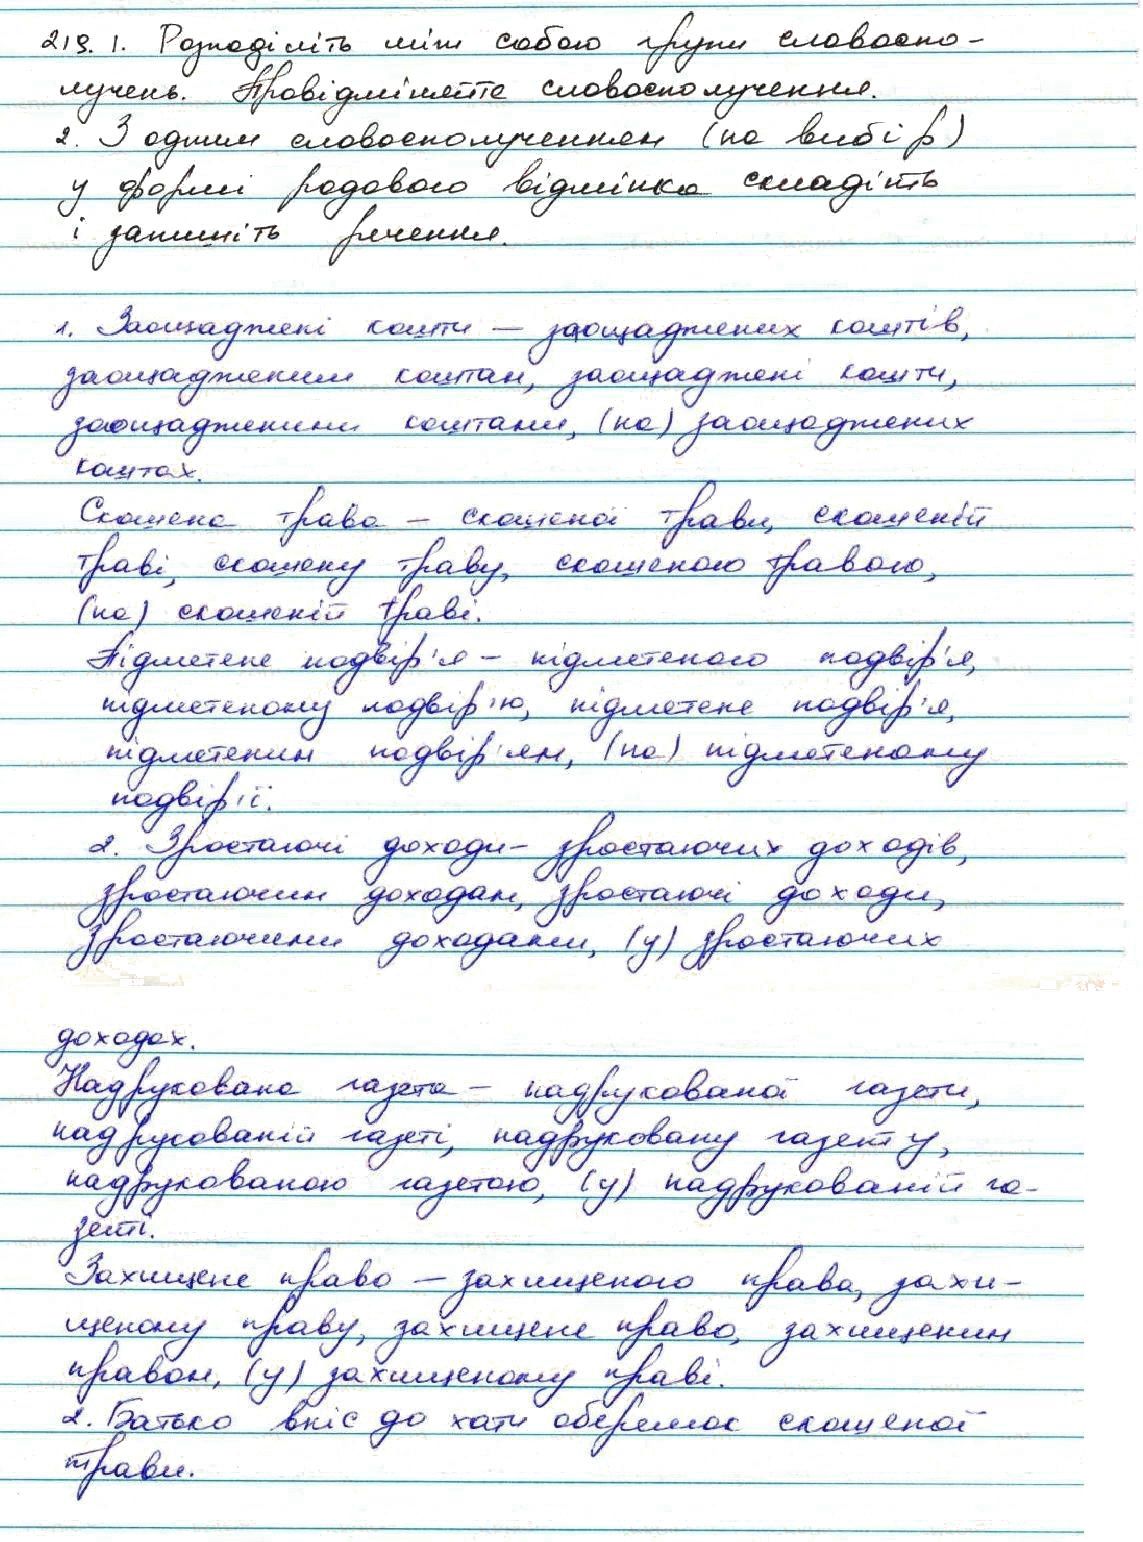 219. 1. Розподіліть між собою групи словоспо-
лучень. Провідміняйте словосполучення.
2. З одним словосполученням (на вибір)
у формі родового відмінка складіть
і запишіть речення.
1. Заощаджені кошти – заощаджених коштів,
заощадженим коштам, заощаджені кошти,
заощадженими коштами, (на) заощаджених
коштах.
Скошена трава – скошеної трави, скошеній
траві, скошену траву, скошеною травою,
(на) скошеній траві.
Підметене подвір'я – підметеного подвір'я,
підметеному подвір'ю, підметене подвір'я,
підметеним подвір'ям, (на) підметеному
подвір'ї.
2. Зростаючі доходи – зростаючих доходів,
зростаючим доходам, зростаючі доходи,
зростаючими доходами, (у) зростаючих
доходах.
Надрукована газета – надрукованої газети,
надрукованій газеті, надруковану газету,
надрукованою газетою, (у) надрукованій га-
зеті.
Захищене право – захищеного права, захи-
щеному праву, захищене право, захищеним
правом, (у) захищеному праві.
2. Батько вніс до хати оберемок скошеної
трави.